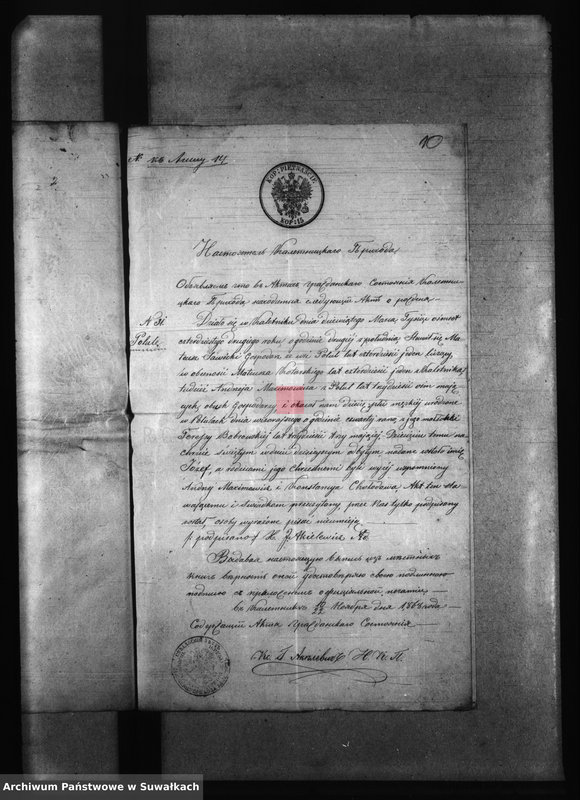 10
№ къ Акту 14
КОП: ПЯТНАДЦАТЬ
КОП: 15
Настоятель Калетницкаго Прихода
Объявляемъ что въ Актахъ Гражданскаго Состоянія Калетни-
цкаго Прихода находится слѣдующій Актъ о рожденіи
N 31
Polule
Działo się w Kaletniku dnia dziewiątego Marca Tysiąc ośmset
czterdziestego drugiego roku o godzinie drugiej z południa, Stawił się Ma-
teusz Sawicki Gospodarz ze wsi Polul lat czterdzieści jeden liczący,
w obecności Mateusza lat czterdzieści jeden z Kaletnika
tudzież Andrzeja Maximowicza z Polul lat trzydzieści ośm mają-
cych, obuch Gospodarzy i okazał nam dziecię płci męzkiej urodzone
w Polulach dnia wczorajszego o godzinie czwartej rano z jego małżonki
Terezy Bobrowskiej lat trzydzieści trzy mającej. Dziecięciu temu na
chrzcie świętym w dniu dzisiejszym odbytym nadane zostało imie
Jozef, a rodzicami jego chrzestnemi byli wyżej wspomniony
Andrzej Maximowicz i Konstancya Chołodowa, Akt ten sta-
wającemu i świadkom przeczytany, przez Nas tylko podpisany
został, osoby wyrażone pisać nieumieją.
/: podpisano :/ X. J. Akielewicz
Выдавая настоящую выпись изъ мѣстныхъ
книгъ вѣрность оной удостовѣряю своею подлинною
подписью съ приложеніемъ официальной печати
Въ Калетникѣ Ноября дня 1863 года
Содержащій Акта Гражданскаго Состоянія
Кс. Г. Акелевичъ Н. К. П.
Archiwum Państwowe w Suwałkach